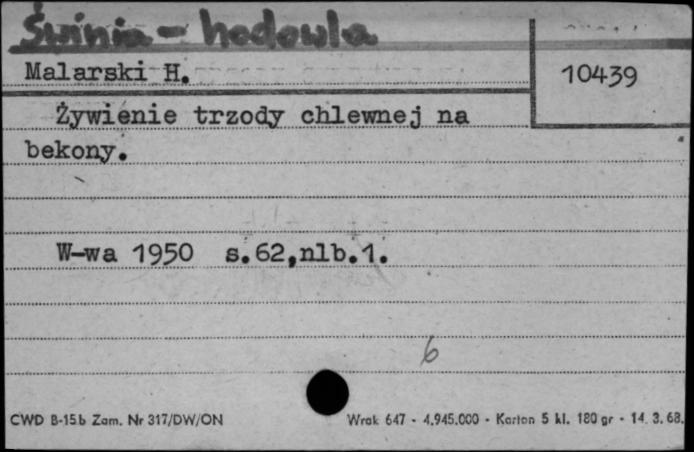 Świnia - hodowla
Malarski H.
10439
Żywienie trzody chlewnej na
bekony.
W-wa 1950 s.62,nlb.1.
6
CWD B-15b Zam. Nr 317/DW/ON Wrak 647 - 4.945.000 - Karton 5 kl. 180 gr - 14. 3. 68.